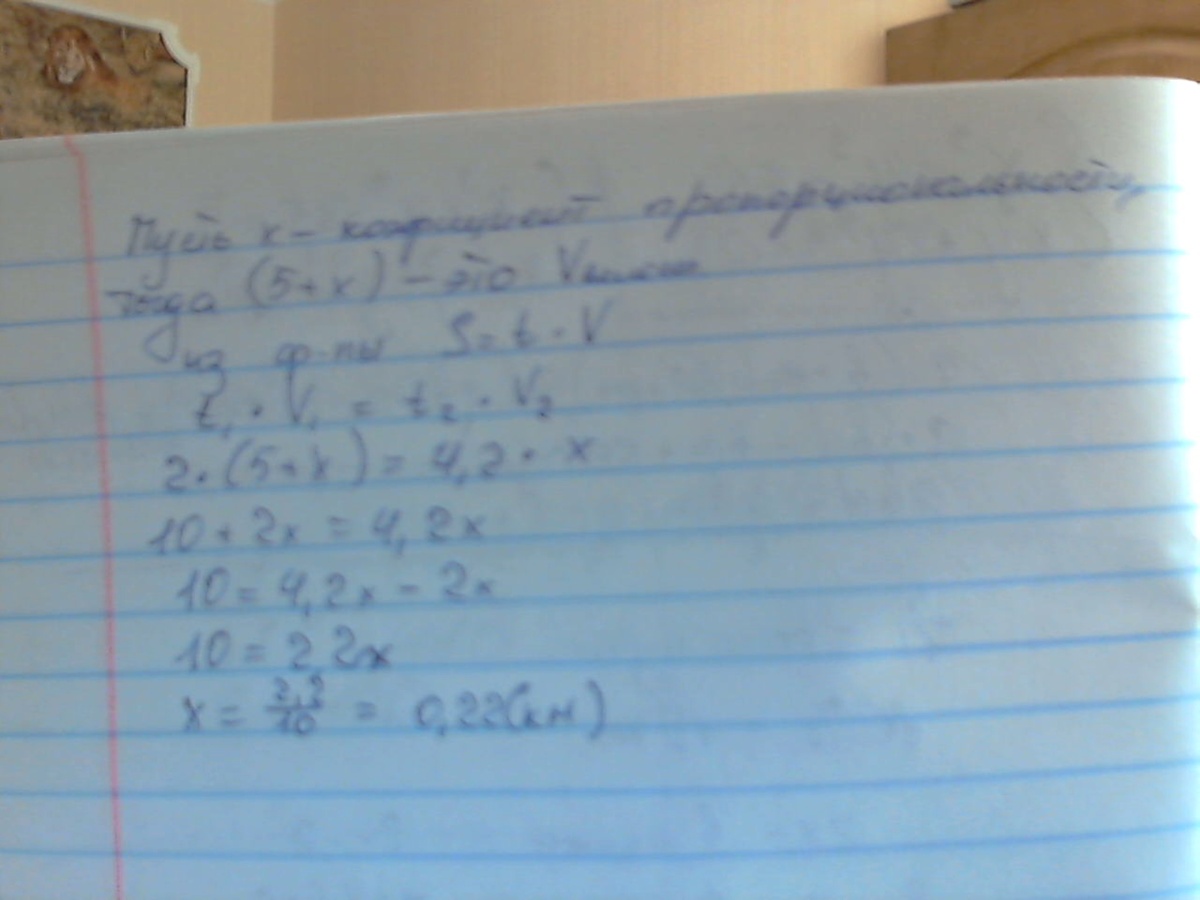 Пусть x - коэфициент пропорциональности,
тогда (5+x) - это V
из ф-лы S=t·V
t₁·V₁=t₂·V₂
2·(5+x)=4,2·x
10+2x=4,2x
10=4,2x-2x
10=2,2x
x=2,2/10=0,22(км)